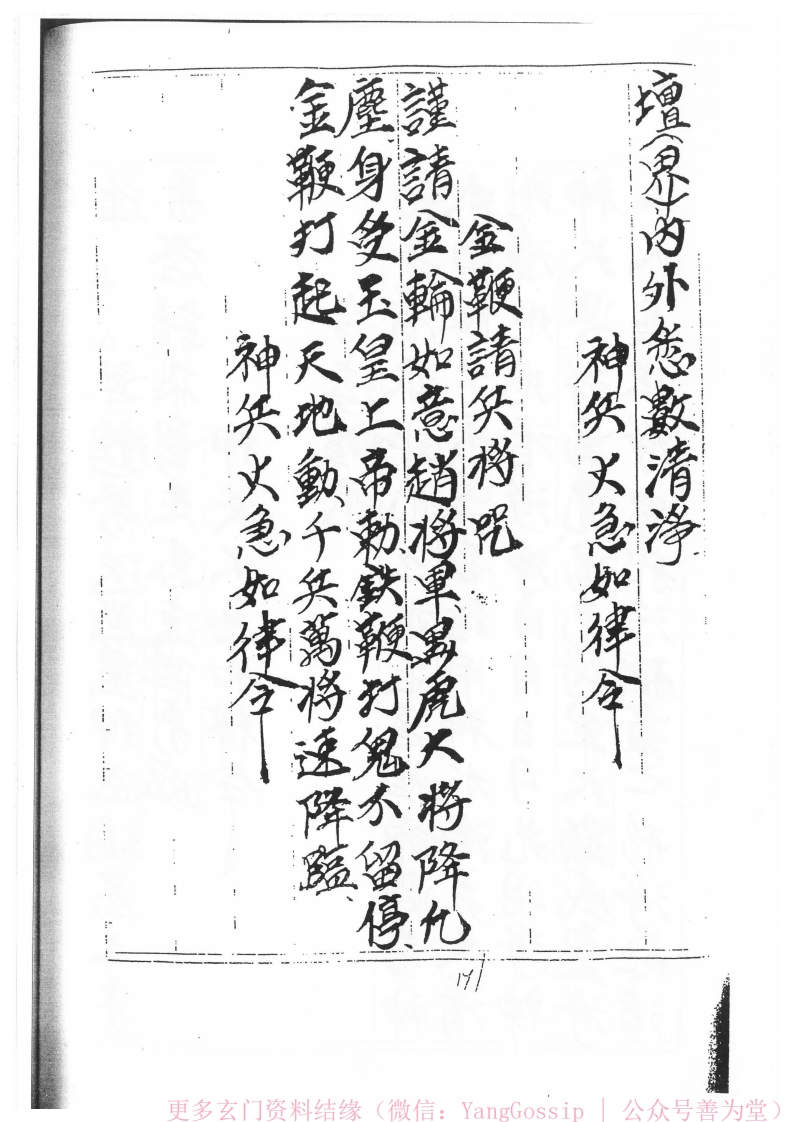 壇(界)內外悉數清淨
神兵火急如律令
金鞭請兵將咒
謹請金輪如意趙將軍黑虎大將降凡
塵身受玉皇上帝勅鉄鞭打鬼不留停
金鞭打起天地動千兵萬將速降臨
神兵火急如律令
17
更多玄门资料结缘（微信：YangGossip | 公众号善为堂）